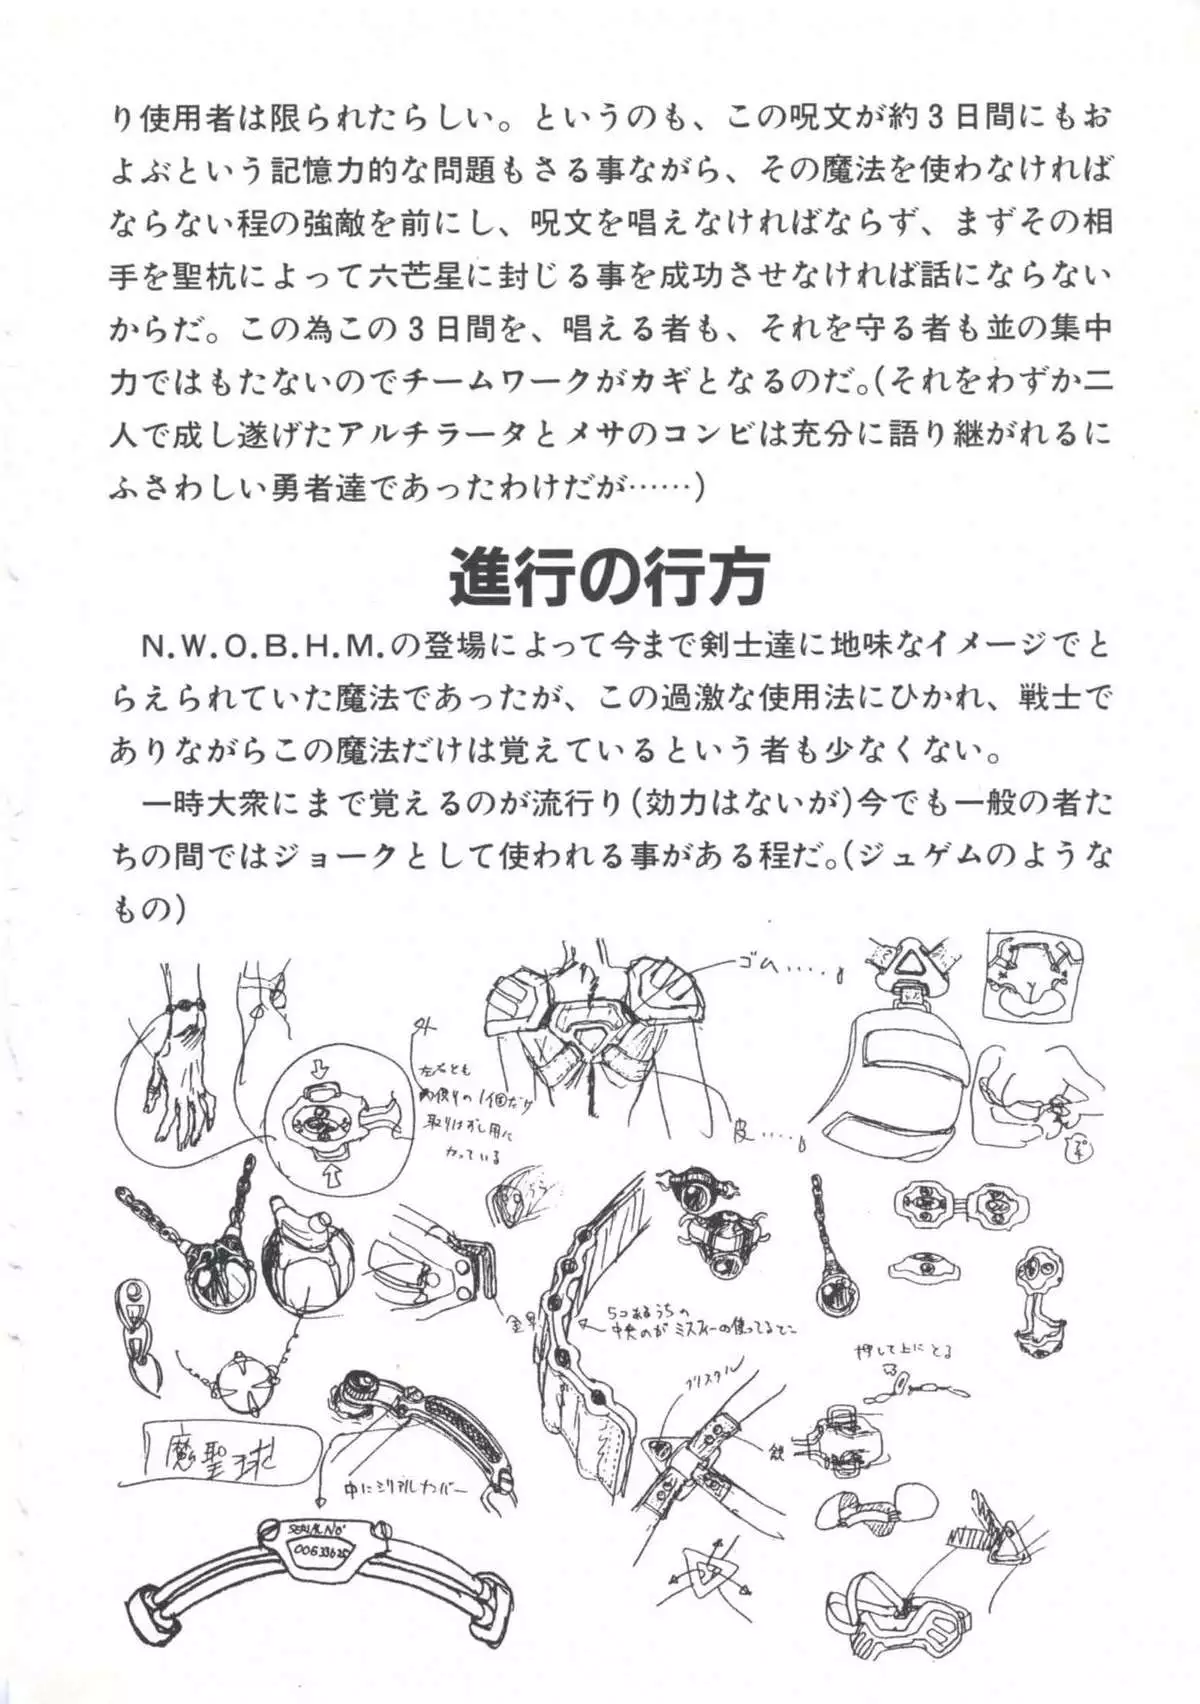 り使用者は限られたらしい。というのも、この呪文が約3日間にもお
よぶという記憶力的な問題もさる事ながら、その魔法を使わなければ
ならない程の強敵を前にし、呪文を唱えなければならず、まずその相
手を聖杭によって六芒星に封じる事を成功させなければ話にならない
からだ。この為この3日間を、唱える者も、それを守る者も並の集中
力ではもたないのでチームワークがカギとなるのだ。(それをわずか二
人で成し遂げたアルチラータとメサのコンビは充分に語り継がれるに
ふさわしい勇者達であったわけだが……)
進行の行方
N.W.O.B.H.M.の登場によって今まで剣士達に地味なイメージでと
らえられていた魔法であったが、この過激な使用法にひかれ、戦士で
ありながらこの魔法だけは覚えているという者も少なくない。
一時大衆にまで覚えるのが流行り(効力はないが)今でも一般の者た
ちの間ではジョークとして使われる事がある程だ。(ジュゲムのような
もの)
ゴム……。
外
左右とも
の1個だけ
取りはずし用に
なっている
皮……。
うら
5コあるうちの
中央のがミスティーの使ってるとこ
押して上にとる
クリスタル
銀
魔聖球
中にシリアルナンバー
SERIAL NO'
00633625